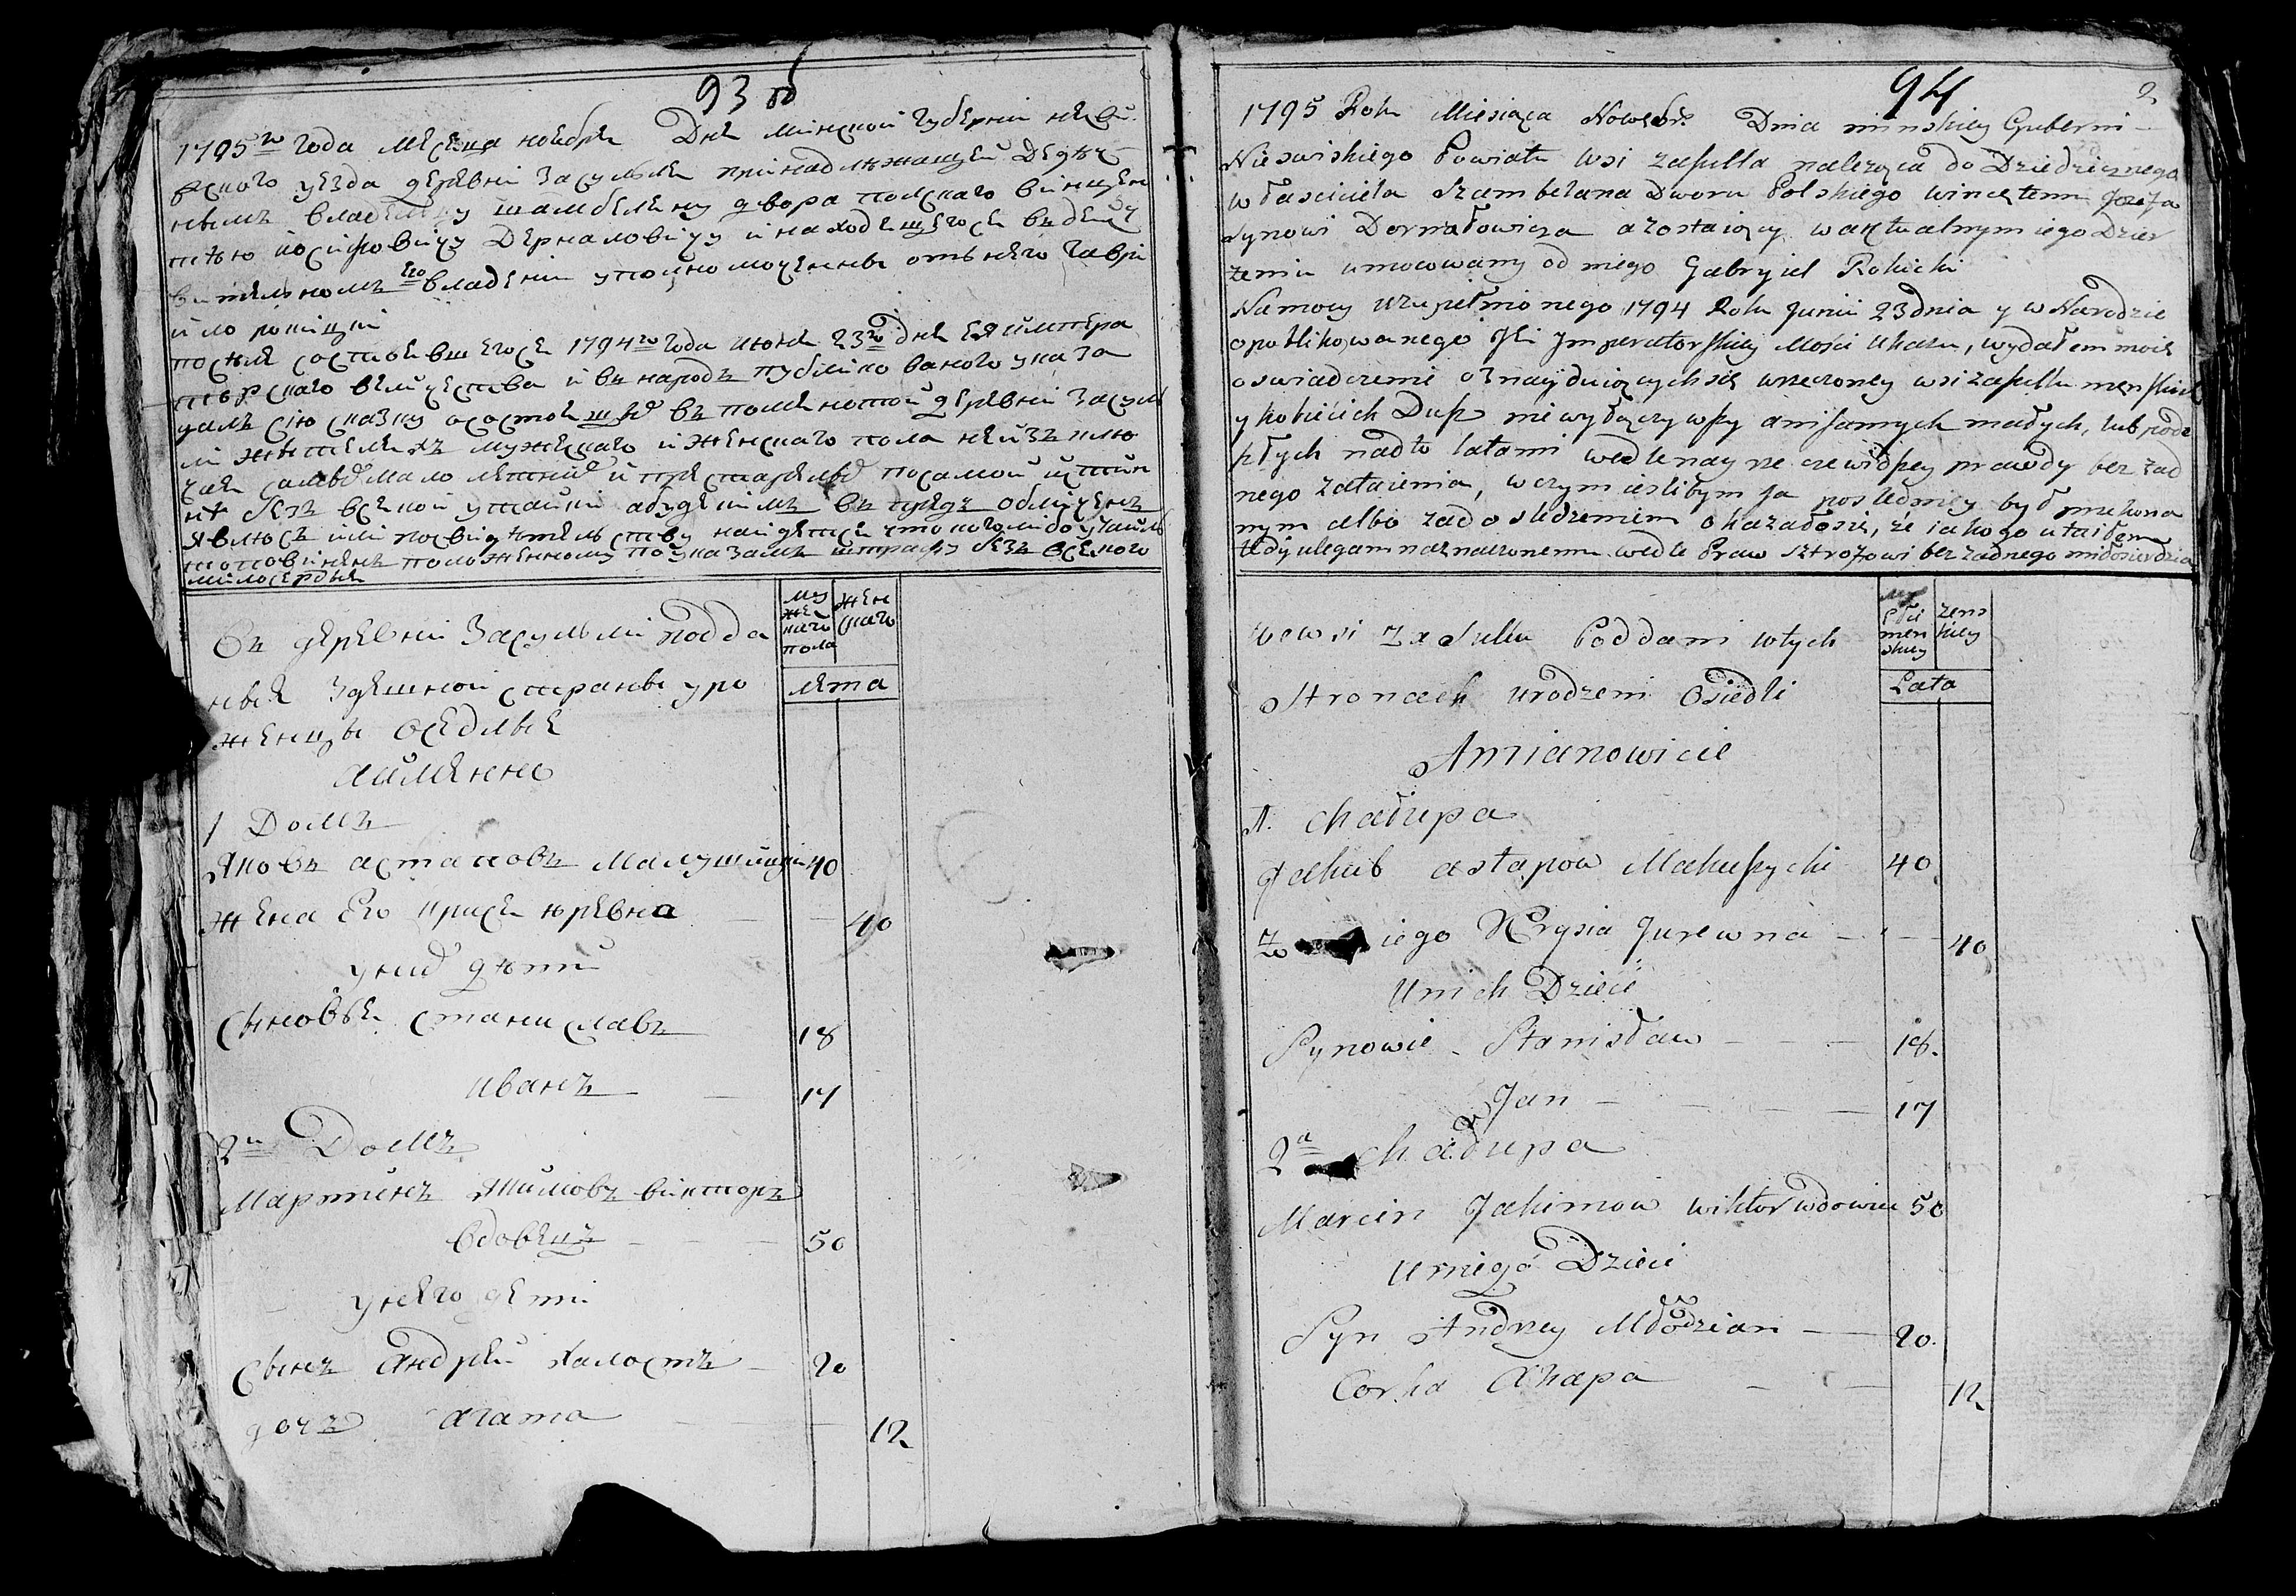 93 об
1795го года месеца ноебря Дня минской губернии несви
жского уезда деревни Засулья принадлежащей Дедич
нымъ владельцу шамбеляну двора полского винцен
тъю иосифовичу Дерналовичу и находещегосе въ действ
вительномъ его владении уполномоченны отъ него Гаври
ило рокицки
после состоевшегосе 1794го года июня 23го дня ея импера
торскаго величества и въ народъ публикованого указа
далъ сию сказку осостоещихъ въ помянотой деревни Засул
ли жителяхъ мужескаго и женскаго пола неизклю
чая самыхъ малолетних и престарелыхъ посамой истин
нѣ безъ всякой утайки абудеи имъ въ
явлюсь или посвидѣтельству найдетсе что кого либо утаилъ
топовиненъ положенному поуказамъ штрафу безъ всякого
милосердия
Въ деревни Засульли подда
ные Здешной стороны уро
женцы оседлые
аимянно
му
же
скаго
пола
жен
скаго
лета
1 Домъ
Яковъ астаповъ Макушицки 40
жена Его крися юревна 40
уних дѣти
сыновья станиславъ 18
иванъ 17
2й Домъ
Мартинъ Якимовъ викторъ
вдовецъ 50
унего дети
сынъ Андрей халостъ 20
дочъ агата 12
94
2
1795 Roku Miesiąca Nowębr. Dnia minskiey Guberni
Nieswiskiego Powiatu wsi zasulla nalezącа do Dziedzicznego
własciciela Szambelana Dworu Polskiego wincętemu Jozefa
Synowi Dernałowicza azostaiący waktualnym iego Dzier
żeniu umocowany od niego Gabryiel Rokicki
Namocy uzupełnionego 1794 Roku Junii 23 dnia y w Narodzie
opublikowanego Jei Jmperatorskiey Mości Ukazu, wydałem moie
oswiadczenie oznayduiących się wrzeczoney wsi zasullu menskich
y kobiecich Dusz niewyłączywszy anisamych małych, lub pode
szłych nadto latami wedle nayrzeczewistszey prawdy bez zad
nego zataienia, wczym ieslibym Ja posledniey był przekona
nym albo zadosledzeniem okazałosie, że iakogo utaiłem
tedy ulegam naznaczonemu wedle Praw sztrofowi bez zadnego miłosierdzia
wewsi zasullu Poddani wtych
Stronach urodzeni Osiedli
Amianowicie
płci
men
skiey
zens
kiey
Lata
1. chałupa
Jakub astapow Makuszycki 40
iego Krysia Jurewna 40
Unich Dzieci
Synowie Stanisław 18.
Jan 17
2a chałupa
Marcin Jakimow wiktor wdowiec 50
Uniego Dzieci
Syn Andrzey Młodzian 20.
Corka Ahapa 12